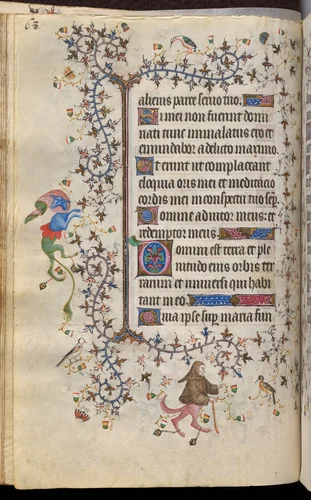 63
alienis parce seruo tuo.
Si mei non fuerint domi
nati tunc immaculatus ero et
emundabor a delicto maximo.
Et erunt ut complaceant
eloquia oris mei et meditacio
cordis mei in conspectu tuo sep̄.
Domine adiutor meus: et
redemptor meus.
Domini est terra et ple
nitudo eius orbis ter
rarum et uniuersi qui habi
tant in eo.
Quia ipse sup̄ maria fun